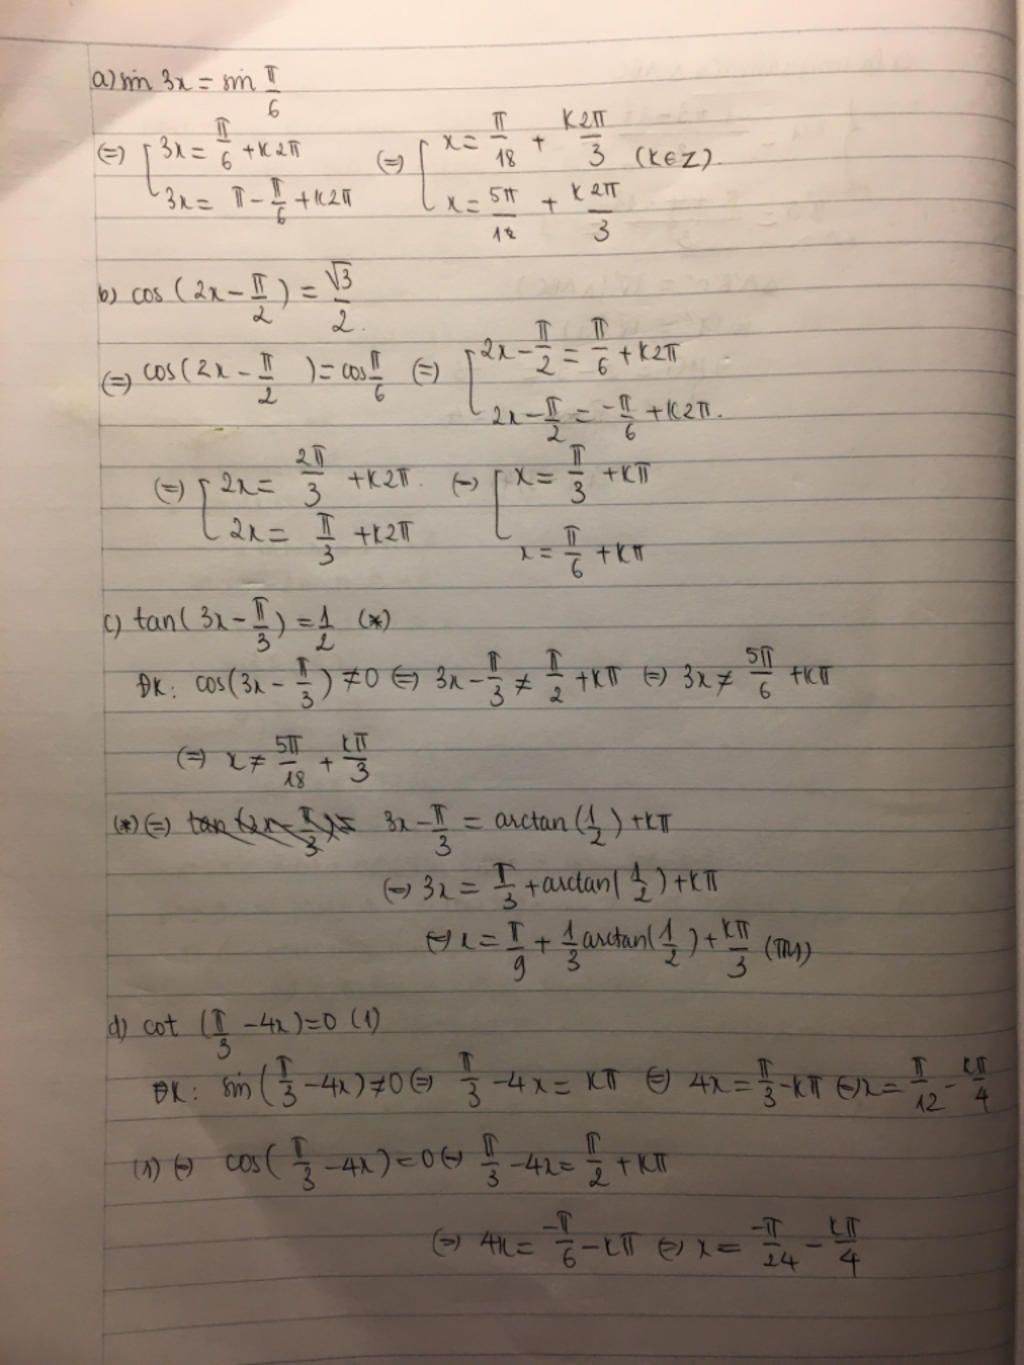 a) sin 3x = sin π/6
(=) [ 3x = π/6 + k2π (=) [ x = π/18 + k2π/3 (k∈Z).
3x = π - π/6 + k2π x = 5π/18 + k2π/3
b) cos (2x - π/2) = √3/2.
(=) cos(2x - π/2) = cos π/6 (=) [ 2x - π/2 = π/6 + k2π
2x - π/2 = -π/6 + k2π.
(=) [ 2x = 2π/3 + k2π. (=) [ x = π/3 + kπ
2x = π/3 + k2π x = π/6 + kπ
c) tan(3x - π/3) = 1/2 (*)
ĐK: cos(3x - π/3) ≠ 0 (=) 3x - π/3 ≠ π/2 + kπ (=) 3x ≠ 5π/6 + kπ
(=) x ≠ 5π/18 + kπ/3
(*) (=) 3x - π/3 = arctan(1/2) + kπ
(=) 3x = π/3 + arctan(1/2) + kπ
(=) x = π/9 + 1/3 arctan(1/2) + kπ/3 (TM)
d) cot (π/3 - 4x) = 0 (1)
ĐK: sin(π/3 - 4x) ≠ 0 (=) π/3 - 4x = kπ (=) 4x = π/3 - kπ (=) x = π/12 - kπ/4
(1) (=) cos(π/3 - 4x) = 0 (=) π/3 - 4x = π/2 + kπ
(=) 4x = -π/6 - kπ (=) x = -π/24 - kπ/4